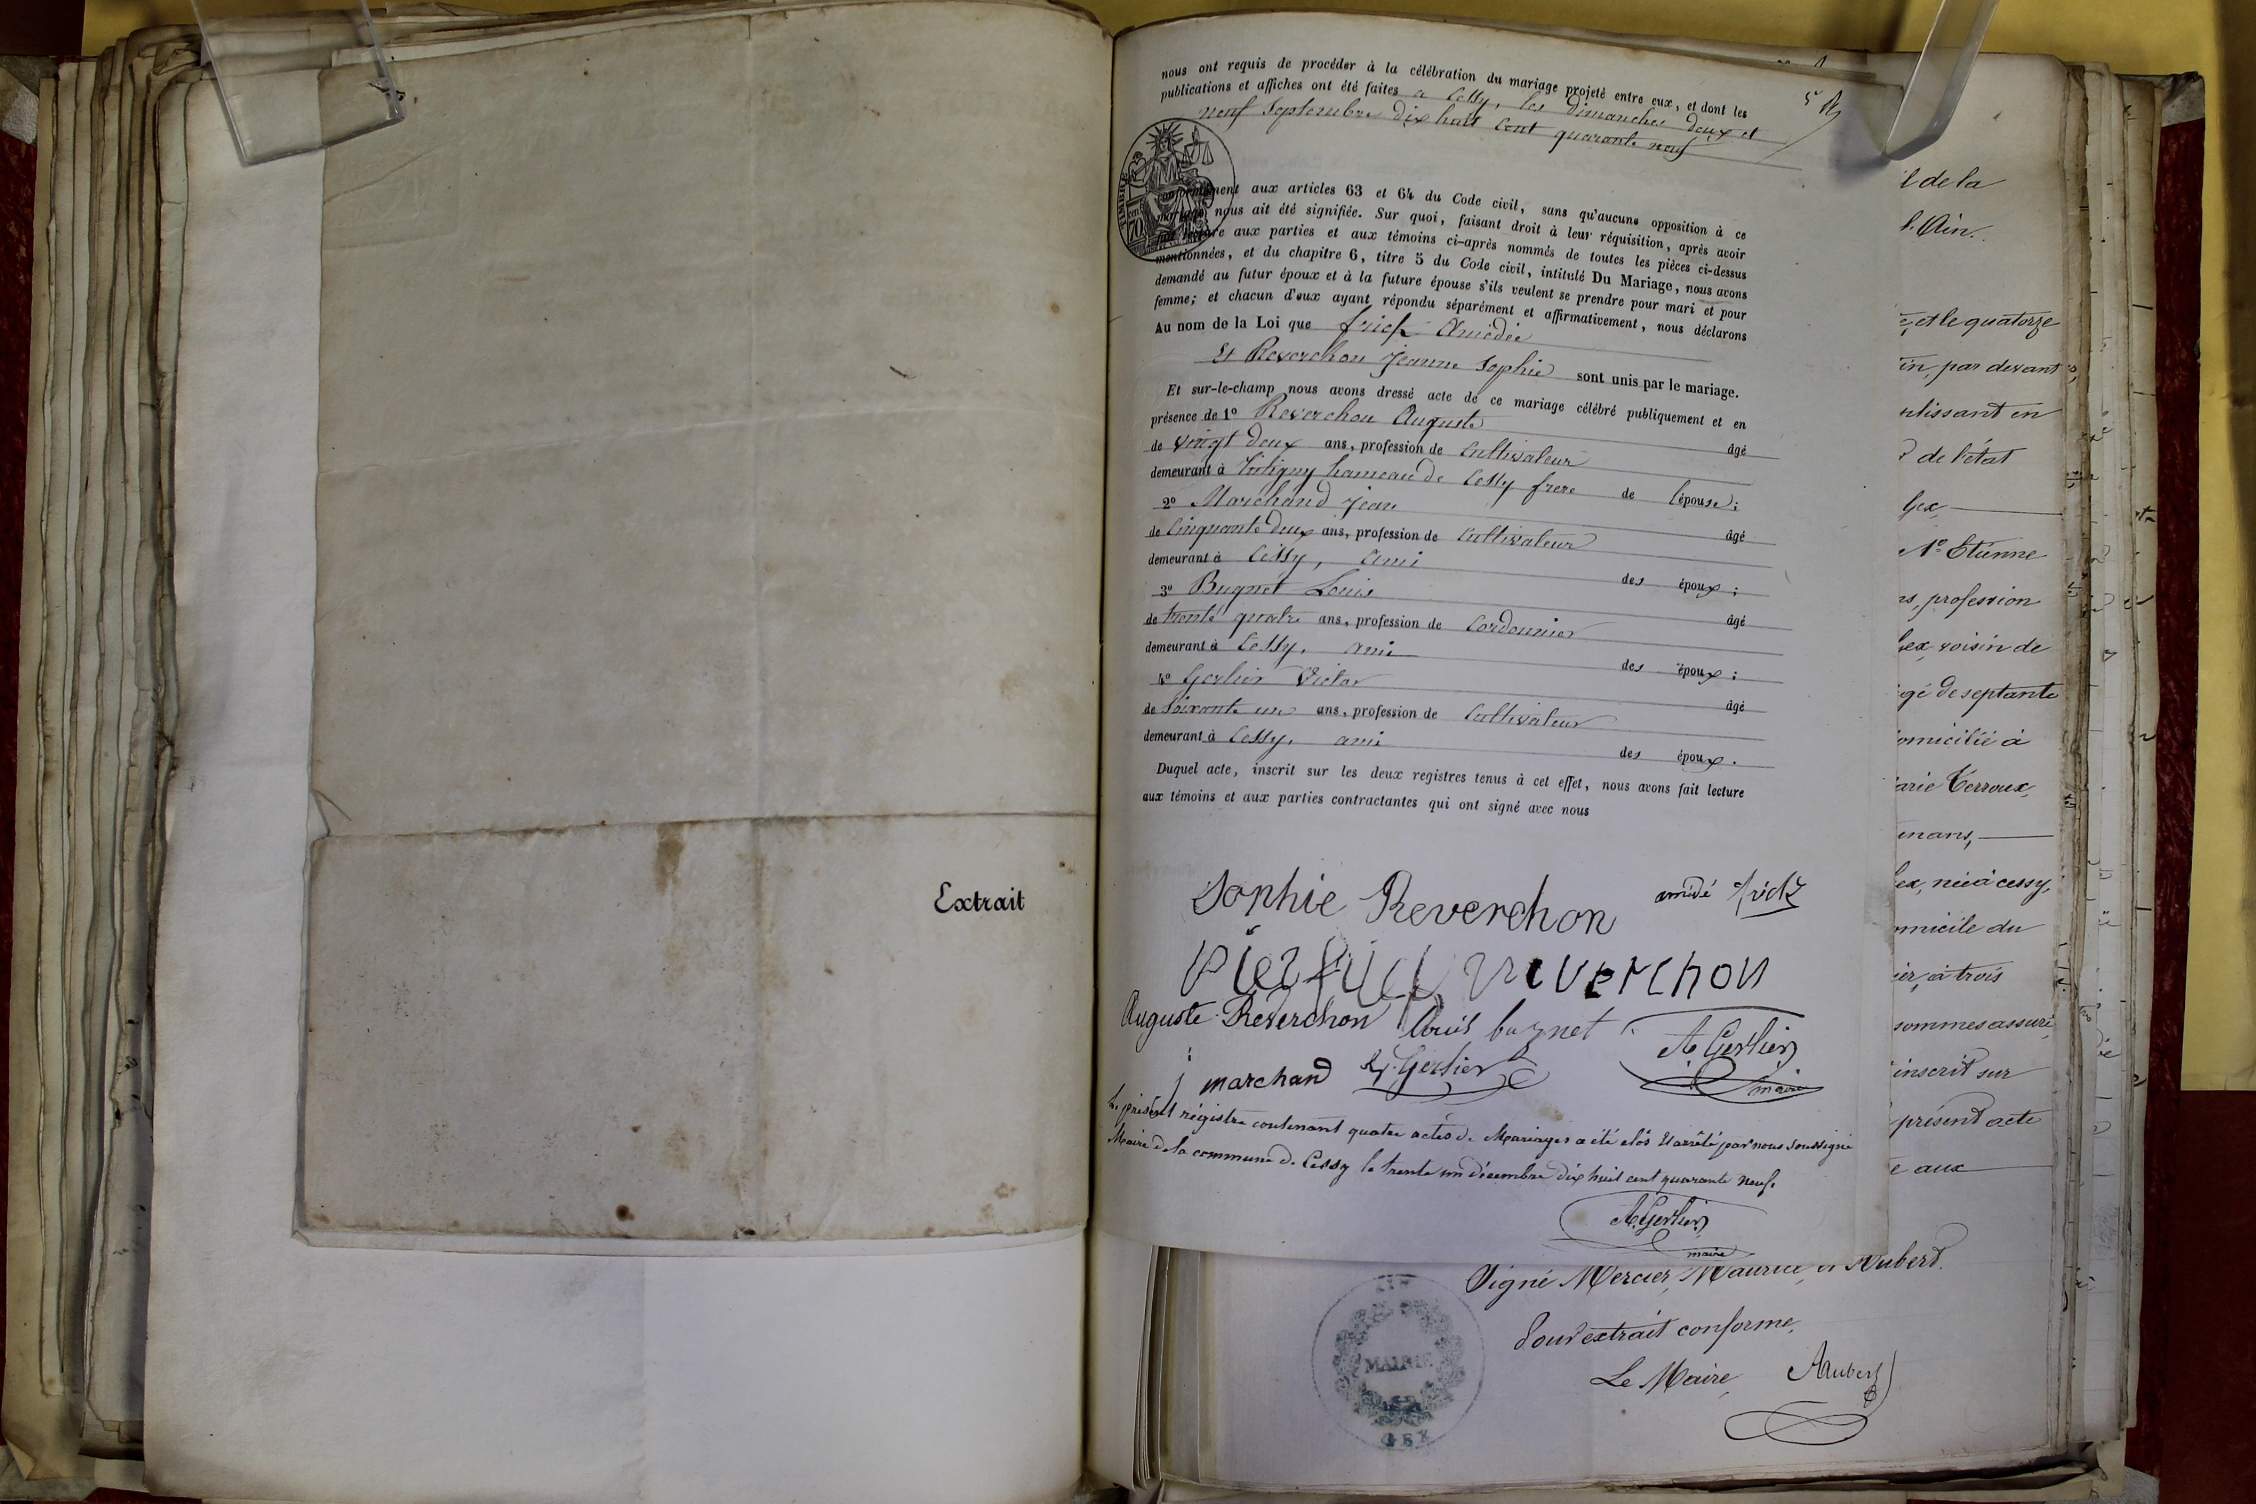 Extrait
nous ont requis de procéder à la célébration du mariage projeté entre eux, et dont les
publications et affiches ont été faites a Cessy, les dimanches deux et
neuf Septembre dix huit cent quarante neuf
5e
TIMBRE
70
conformément aux articles 63 et 64 du Code civil, sans qu'aucune opposition à ce
mariage nous ait été signifiée. Sur quoi, faisant droit à leur réquisition, après avoir
fait lecture aux parties et aux témoins ci-après nommés de toutes les pièces ci-dessus
mentionnées, et du chapitre 6, titre 5 du Code civil, intitulé Du Mariage, nous avons
demandé au futur époux et à la future épouse s'ils veulent se prendre pour mari et pour
femme; et chacun d'eux ayant répondu séparément et affirmativement, nous déclarons
Au nom de la Loi que frick Amédée
Et Reverchon Jeanne Sophie sont unis par le mariage.
Et sur-le-champ nous avons dressé acte de ce mariage célébré publiquement et en
présence de 1º Reverchon Auguste âgé
de vingt deux ans, profession de Cultivateur
demeurant à Tutigny hameau de Cessy frere de l'épouse;
2º Marchand Jean âgé
de Cinquante deux ans, profession de Cultivateur
demeurant à Cessy, ami des époux;
3º Bugnet Louis âgé
de trente quatre ans, profession de Cordonnier
demeurant à Cessy, ami des époux;
4º Gerlier Victor âgé
de Soixante un ans, profession de Cultivateur
demeurant à Cessy, ami des époux.
Duquel acte, inscrit sur les deux registres tenus à cet effet, nous avons fait lecture
aux témoins et aux parties contractantes qui ont signé avec nous
Sophie Reverchon amédé frick
reverchon
Auguste Reverchon Louis bugnet A Gerlier
j marchand V. Gerlier maire
Le présent régistre contenant quatre actes de Mariages a été clos et arrêté par nous soussigné
Maire de la commune de Cessy le trente un décembre dix huit cent quarante neuf.
A. Gerlier
maire
l de la
l'Ain.
et le quatorze
in, par devant
plissant en
de l'état
Gex
Mº Etienne
ns, profession
Gex voisin de
âgé de septante
omicilié à
arie Terroux,
mans,
Gex, née à cessy,
omicile du
ier, à trois
sommes assuré
inscrit sur
présent acte
e aux
Signé Mercier, Maurice, et Aubert.
Pour extrait conforme,
Le Maire, Aubert
AIN
MAIRIE
DE
GEX